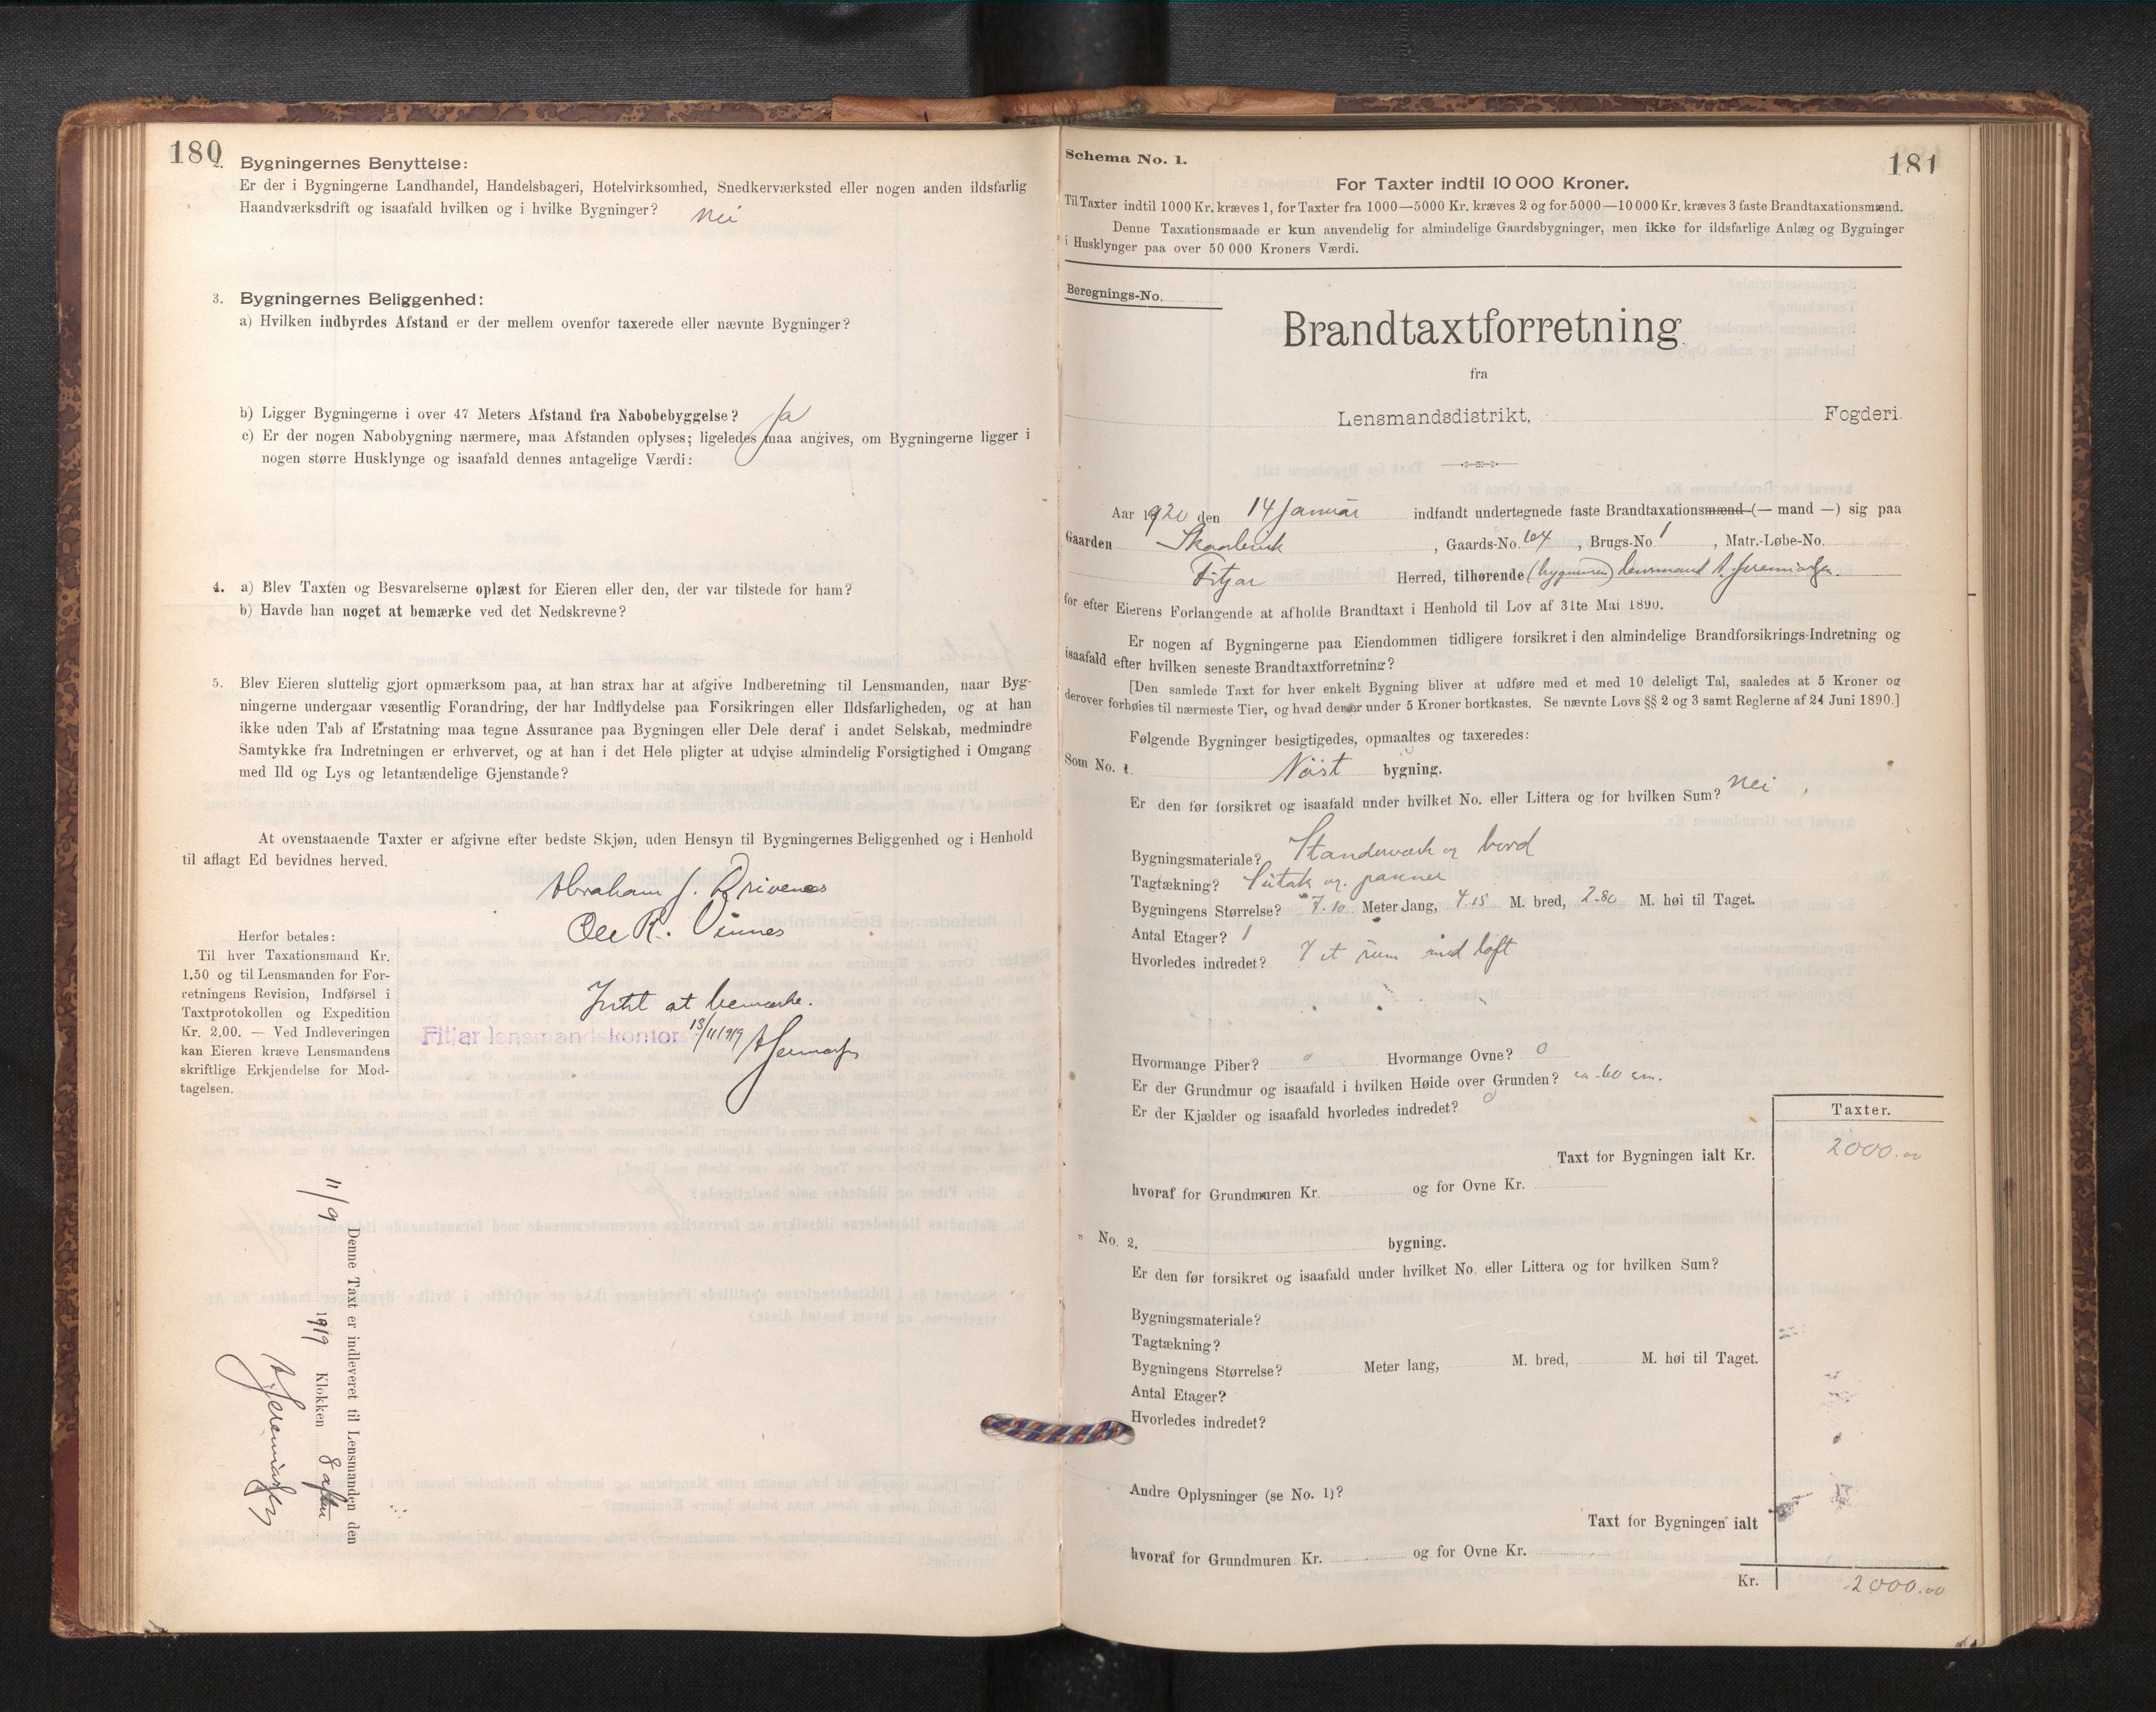 180
2. Bygningernes Benyttelse:
Er der i Bygningerne Landhandel, Handelsbageri, Hotelvirksomhed, Snedkerværksted eller nogen anden ildsfarlig
Haandværksdrift og isaafald hvilken og i hvilke Bygninger? Nei
3. Bygningernes Beliggenhed:
a) Hvilken indbyrdes Afstand er der mellem ovenfor taxerede eller nævnte Bygninger?
b) Ligger Bygningerne i over 47 Meters Afstand fra Nabobebyggelse? Ja
c) Er der nogen Nabobygning nærmere, maa Afstanden oplyses; ligeledes maa angives, om Bygningerne ligger i
nogen større Husklynge og isaafald dennes antagelige Værdi:
4. a) Blev Taxten og Besvarelserne oplæst for Eieren eller den, der var tilstede for ham?
b) Havde han noget at bemærke ved det Nedskrevne?
5. Blev Eieren sluttelig gjort opmærksom paa, at han strax har at afgive Indberetning til Lensmanden, naar Byg-
ningerne undergaar væsentlig Forandring, der har Indflydelse paa Forsikringen eller Ildsfarligheden, og at han
ikke uden Tab af Erstatning maa tegne Assurance paa Bygningen eller Dele deraf i andet Selskab, medmindre
Samtykke fra Indretningen er erhvervet, og at han i det Hele pligter at udvise almindelig Forsigtighed i Omgang
med Ild og Lys og letantændelige Gjenstande?
At ovenstaaende Taxter er afgivne efter bedste Skjøn, uden Hensyn til Bygningernes Beliggenhed og i Henhold
til aflagt Ed bevidnes herved.
Abraham J. Drivenes
Ole R. Vinnes
Herfor betales:
Til hver Taxationsmand Kr.
1.50 og til Lensmanden for For-
retningens Revision, Indførsel i
Taxtprotokollen og Expedition
Kr. 2.00. — Ved Indleveringen
kan Eieren kræve Lensmandens
skriftlige Erkjendelse for Mod-
tagelsen.
Intet at bemærke.
Fitjar lensmandskontor 13/11 1919 A Jeremiassen
Denne Taxt er indleveret til Lensmanden den
11/9 1919 Klokken 8 aften
A Jeremiassen
181
Schema No. 1.
For Taxter indtil 10 000 Kroner.
Til Taxter indtil 1000 Kr. kræves 1, for Taxter fra 1000—5000 Kr. kræves 2 og for 5000—10 000 Kr. kræves 3 faste Brandtaxationsmænd.
Denne Taxationsmaade er kun anvendelig for almindelige Gaardsbygninger, men ikke for ildsfarlige Anlæg og Bygninger
i Husklynger paa over 50 000 Kroners Værdi.
Beregnings-No.
Brandtaxtforretning
fra
Lensmandsdistrikt, Fogderi.
Aar 1920 den 14 Januar indfandt undertegnede faste Brandtaxationsmænd (— mand —) sig paa
Gaarden , Gaards-No. 64, Brugs-No. 1, Matr.-Løbe-No.
Fitjar Herred, tilhørende (bygningen) lensmand A. Jeremiassen
for efter Eierens Forlangende at afholde Brandtaxt i Henhold til Lov af 31te Mai 1890.
Er nogen af Bygningerne paa Eiendommen tidligere forsikret i den almindelige Brandforsikrings-Indretning og
isaafald efter hvilken seneste Brandtaxtforretning?
[Den samlede Taxt for hver enkelt Bygning bliver at udføre med et med 10 deleligt Tal, saaledes at 5 Kroner og
derover forhøies til nærmeste Tier, og hvad der er under 5 Kroner bortkastes. Se nævnte Lovs §§ 2 og 3 samt Reglerne af 24 Juni 1890.]
Følgende Bygninger besigtigedes, opmaaltes og taxeredes:
Som No. 1. Nöst bygning.
Er den før forsikret og isaafald under hvilket No. eller Littera og for hvilken Sum? Nei
Bygningsmateriale? Standerværk og bord
Tagtækning? Sutak og panner
Bygningens Størrelse? 7.10 Meter lang, 4.15 M. bred, 2.80 M. høi til Taget.
Antal Etager? 1
Hvorledes indredet? I et rum med loft
Hvormange Piber? 0 Hvormange Ovne? 0
Er der Grundmur og isaafald i hvilken Høide over Grunden? ca 60 cm.
Er der Kjælder og isaafald hvorledes indredet? 0
Taxter.
Taxt for Bygningen ialt Kr. 2000.00
hvoraf for Grundmuren Kr. og for Ovne Kr.
„ No. 2. bygning.
Er den før forsikret og isaafald under hvilket No. eller Littera og for hvilken Sum?
Bygningsmateriale?
Tagtækning?
Bygningens Størrelse? Meter lang, M. bred, M. høi til Taget.
Antal Etager?
Hvorledes indredet?
Andre Oplysninger (se No. 1)?
Taxt for Bygningen ialt
hvoraf for Grundmuren Kr. og for Ovne Kr.
Kr. 2000.00